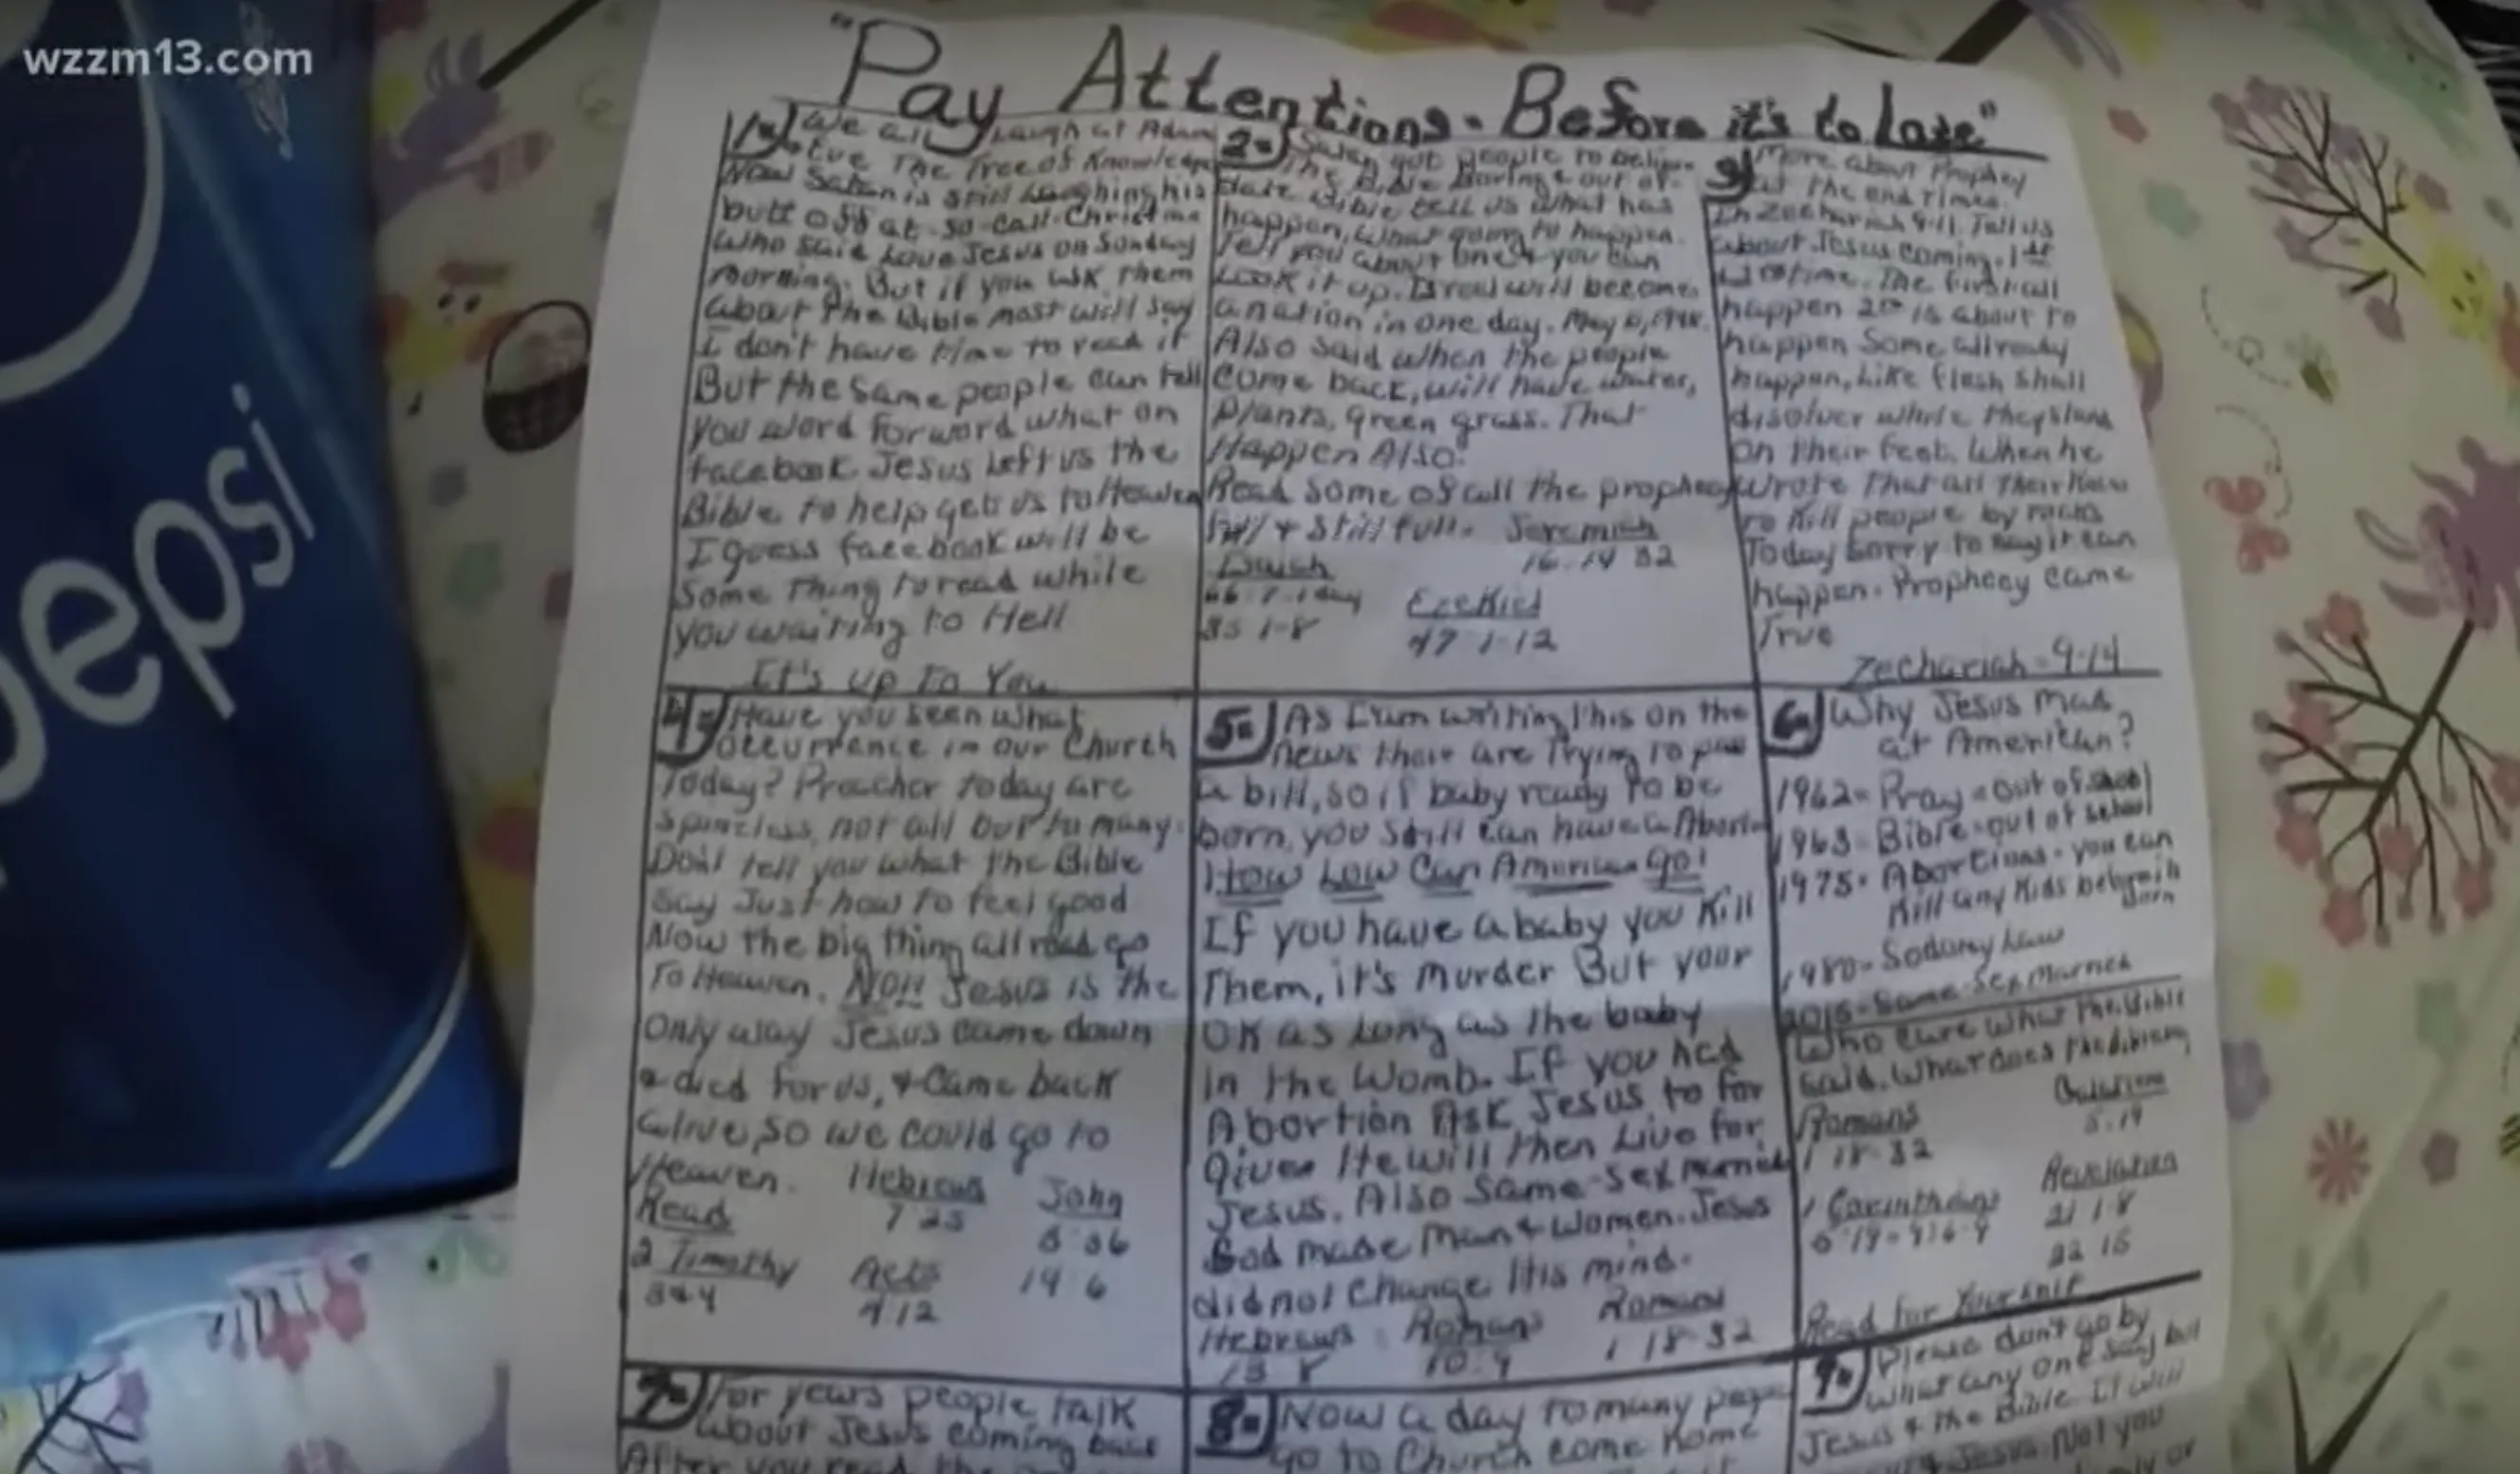 wzzm13.com
pepsi
"Pay Attentions - Before it's to Late"
1- We all Laugh at Adam
Eve The Tree of Knowledge
Now Satan is still Laughing his
butt off at so-call-Christ
Who said Love Jesus on Sunday
morning. But if you ask them
about the Bible most will say
I don't have time to read it
But the same people can tell
you word for word what on
facebook Jesus Left us the
Bible to help get us to Heaven
I guess facebook will be
Some Thing to read while
you waiting to Hell
It's up To You
2- Satan got people to
The Bible Boring & out of
date Bible tell us what has
happen, What going to happen.
Tell you about one & you can
Look it up. Isreal will become
a nation in one day. May
Also said when the people
come back, will have water,
Plants, green grass. That
Happen Also!
Read some of all the prophecy
& Still full. Jeremiah
16-14
66-7-1 day
Ezekiel
35 1-8
47 1-12
3 More about Prophey
at the end Times.
In Zechariah 9-11. Tell us
about Jesus coming. 1st
time. The first all
happen 2nd is about to
happen Some allready
happen, Like flesh shall
disolver while they stand
on their feet. When he
wrote That all Their
to Kill people by rocks
Today sorry to say it can
happen. Prophecy came
True
Zechariah - 9-14
4- Have you seen what
occurrence in our Church
Today? Preacher today are
spineless, not all but to many.
Don't tell you what the Bible
Say Just how to feel good
Now the big thing all road go
To Heaven. NO!! Jesus is the
Only way Jesus came down
& died for us, & Came back
alive, so we could go to
Heaven. Hebrews John
Read 7 25
2 Timothy Acts 14 6
3&4 4 12
5- As I am writing This on the
news there are Trying To pass
a bill, so if baby ready to be
born, you still can have a
How Low Can American Go!
If you have a baby you Kill
Them, it's murder But your
OK as Long as the baby
in The Womb. If you had
Abortion Ask Jesus to for
given He will then Live for
Jesus. Also Same-Sex
God made Man & Women. Jesus
did not change His mind.
Hebrews Romans Romans
13 8 10.9 1 18-32
6- Why Jesus Mad
at American?
1962- Pray - out of school
1963- Bible - out of school
Abortions - you can
Kill any Kids
Born
1980- Sodomy Law
Same-Sex
Who Care what the Bible
Said. What does the
Romans
1 18-32
5.19
1 Corinthians Revelation
21 1-8
22 15
Read for Your self
7- For years people talk
about Jesus coming back
After you read the
8- Now a day to many
go to Church come home
9- Please don't go by
what any one say but
Jesus & the Bible. It will
Jesus. Not you